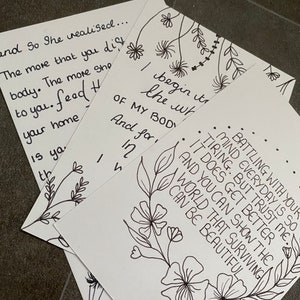 and So She realised...
The more that you
body. The more
to you. feed
your home
is
begin
the
OF MY BODY
And for
in
I
BATTLING WITH YOUR
EVERYDAY IS SO
TIRING. BUT TRUST ME
IT DOES GET BETTER
AND YOU CAN SHOW THE
WORLD THAT SURVIVING
CAN BE BEAUTIFUL